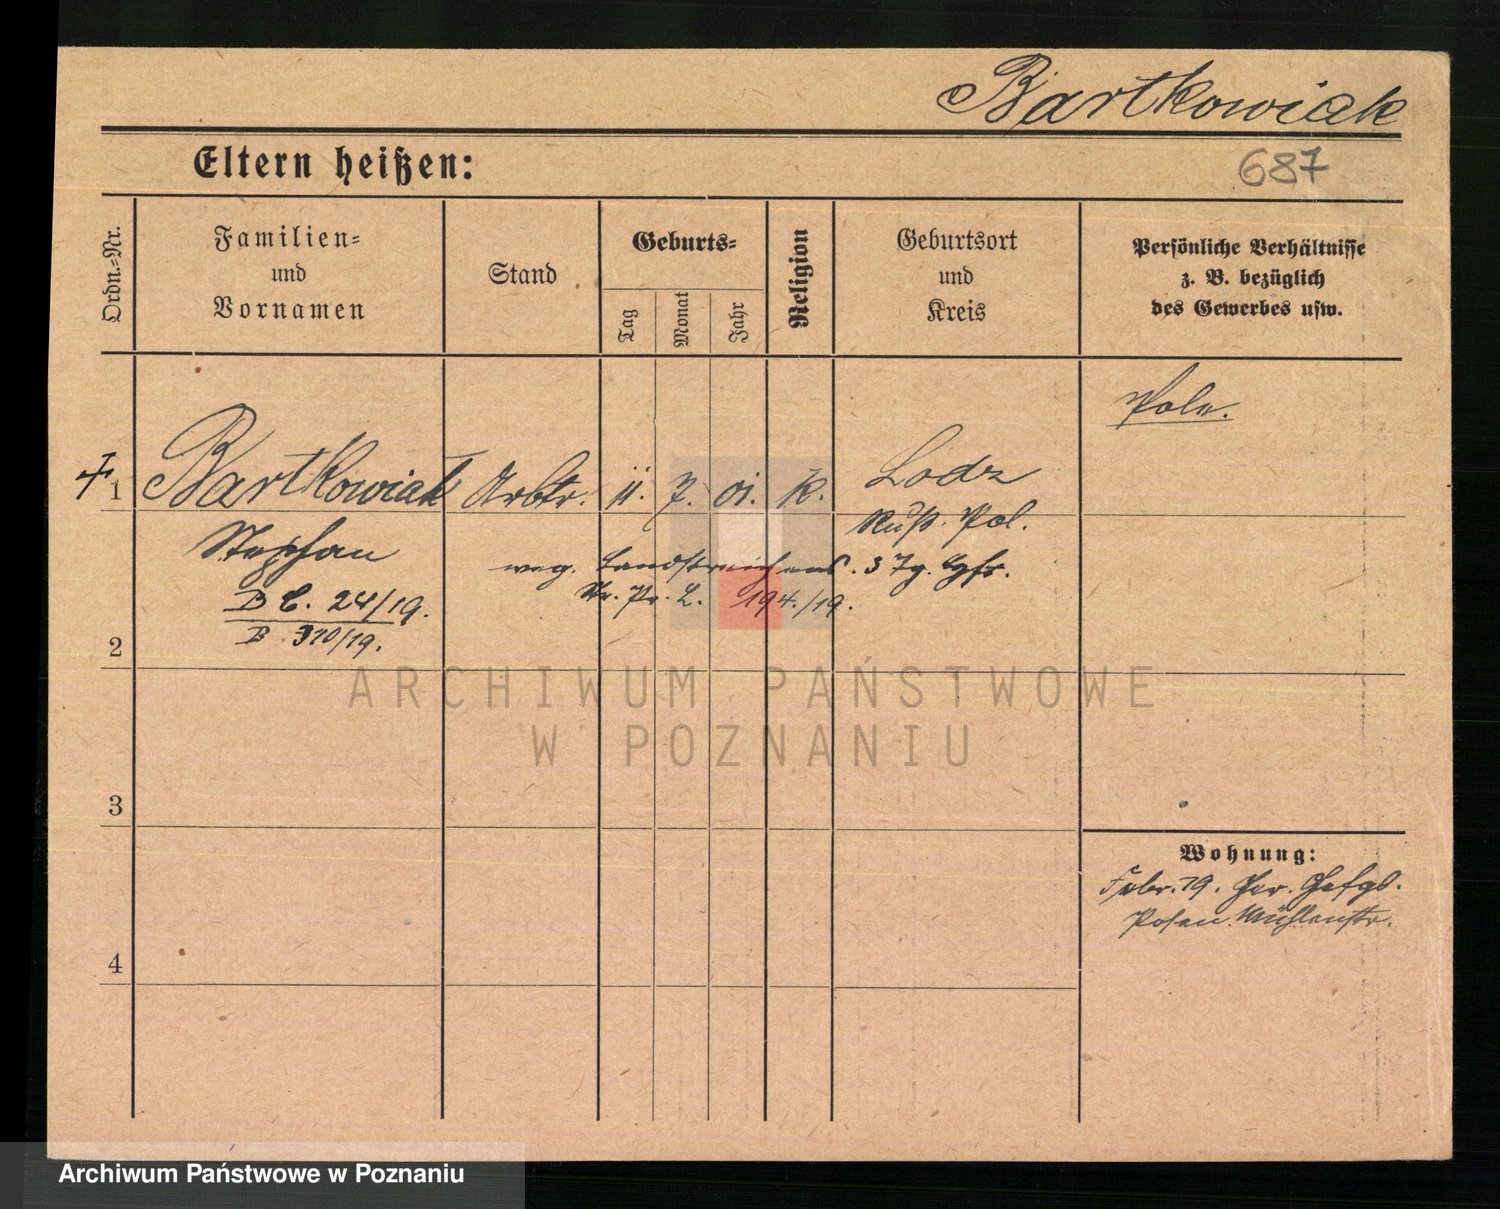 Bartkowiak
Eltern heißen:
687
Ordn.-Nr.
Familien-
und
Vornamen
Stand
Geburts-
Tag
Monat
Jahr
Religion
Geburtsort
und
Kreis
Persönliche Verhältnisse
z. B. bezüglich
des Gewerbes usw.
Pole.
1 Bartkowiak Arbtr. 11. 7. 01. k. Lodz
Stephan
Russ. Pol.
weg. Landstreichens. 3 Tg. Gfs.
B C. 24/19.
Str. Pr. L. 194./19.
B 310/19.
2
ARCHIWUM PAŃSTWOWE
W POZNANIU
3
Wohnung:
Febr. 19. Ger. Gefgs.
Posen Mühlenstr.
4
Archiwum Państwowe w Poznaniu